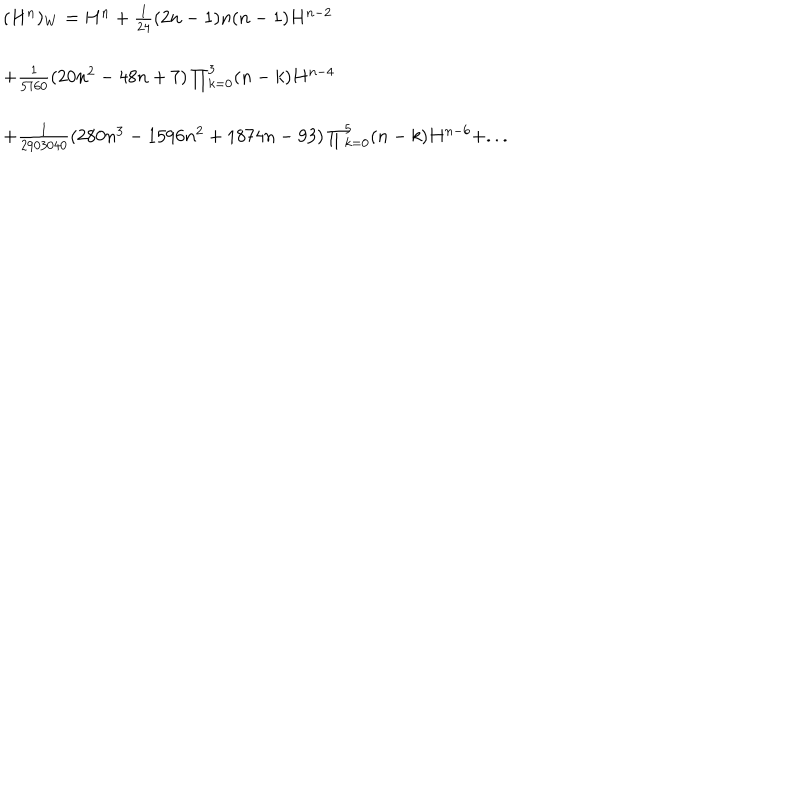 (H^n)_W = H^n + \frac{1}{24}(2n-1)n(n-1)H^{n-2}
+\frac{1}{5760}(20n^2-48n+7)\prod_{k=0}^{3}(n-k)H^{n-4}
+\frac{1}{2903040}(280n^3-1596n^2+1874n-93)\prod_{k=0}^{5}(n-k)H^{n-6}+...